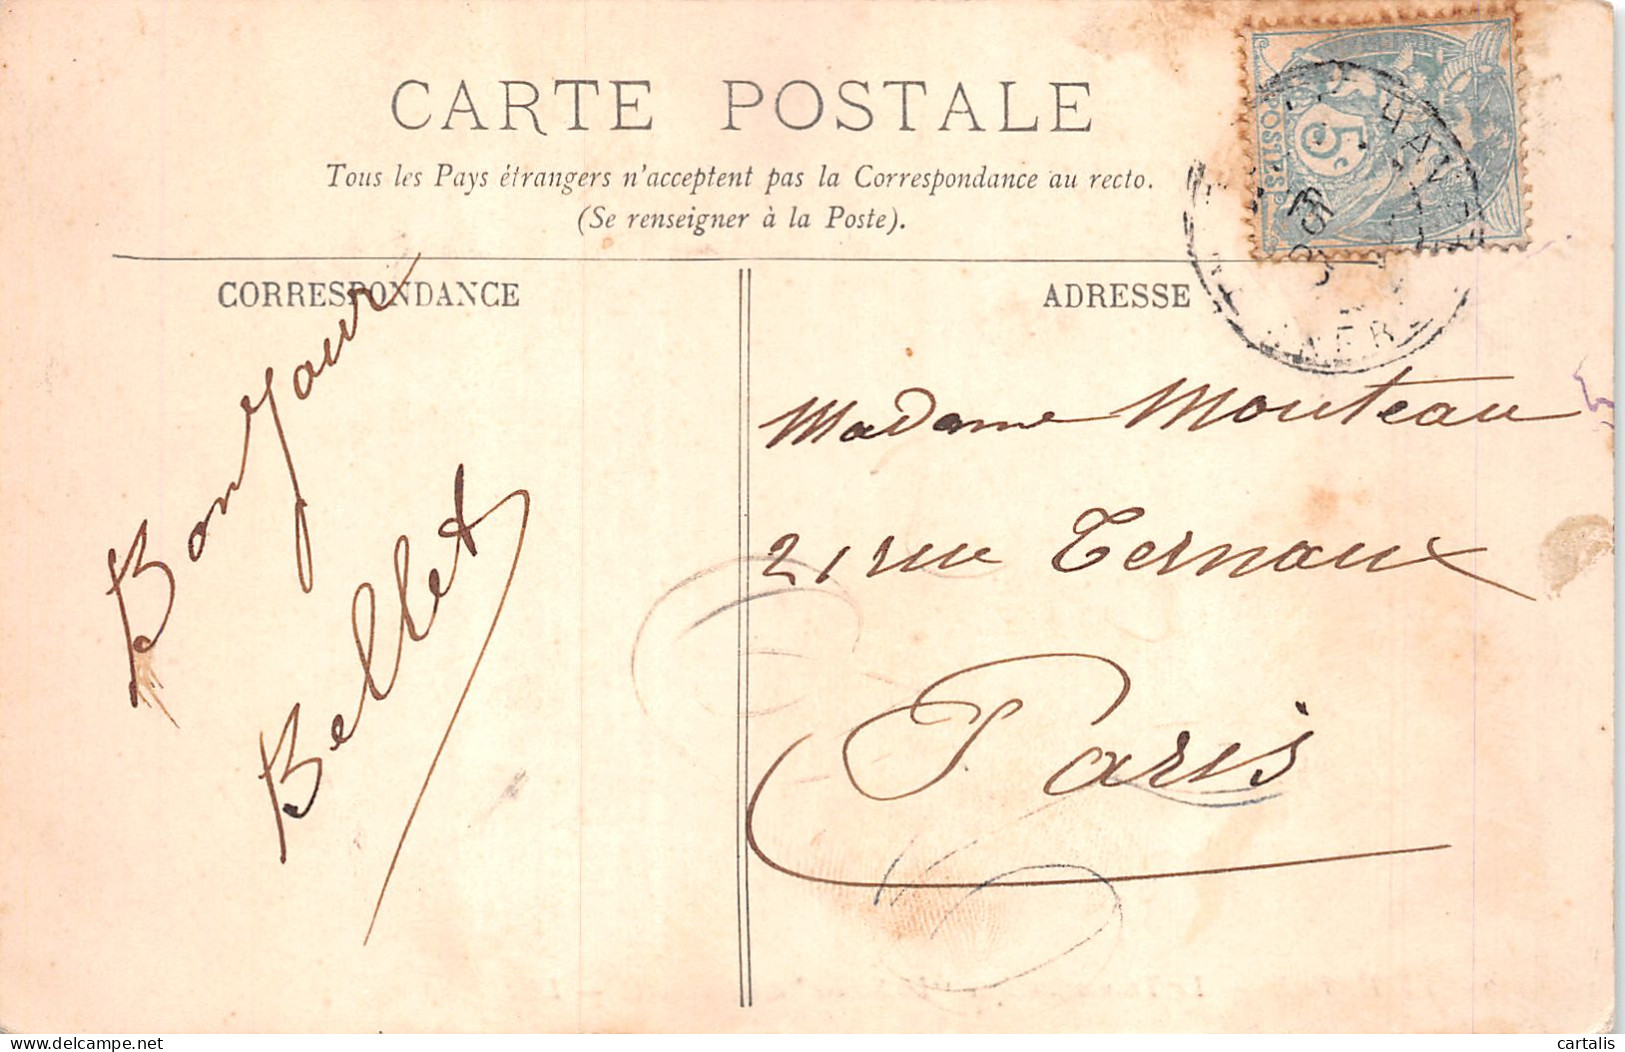 CARTE POSTALE
Tous les Pays étrangers n'acceptent pas la Correspondance au recto.
(Se renseigner à la Poste).
CORRESPONDANCE
ADRESSE
POSTES
5c
Bonjour
Bellet
Madame Mouteau
21 rue Ternaux
Paris
cartalis